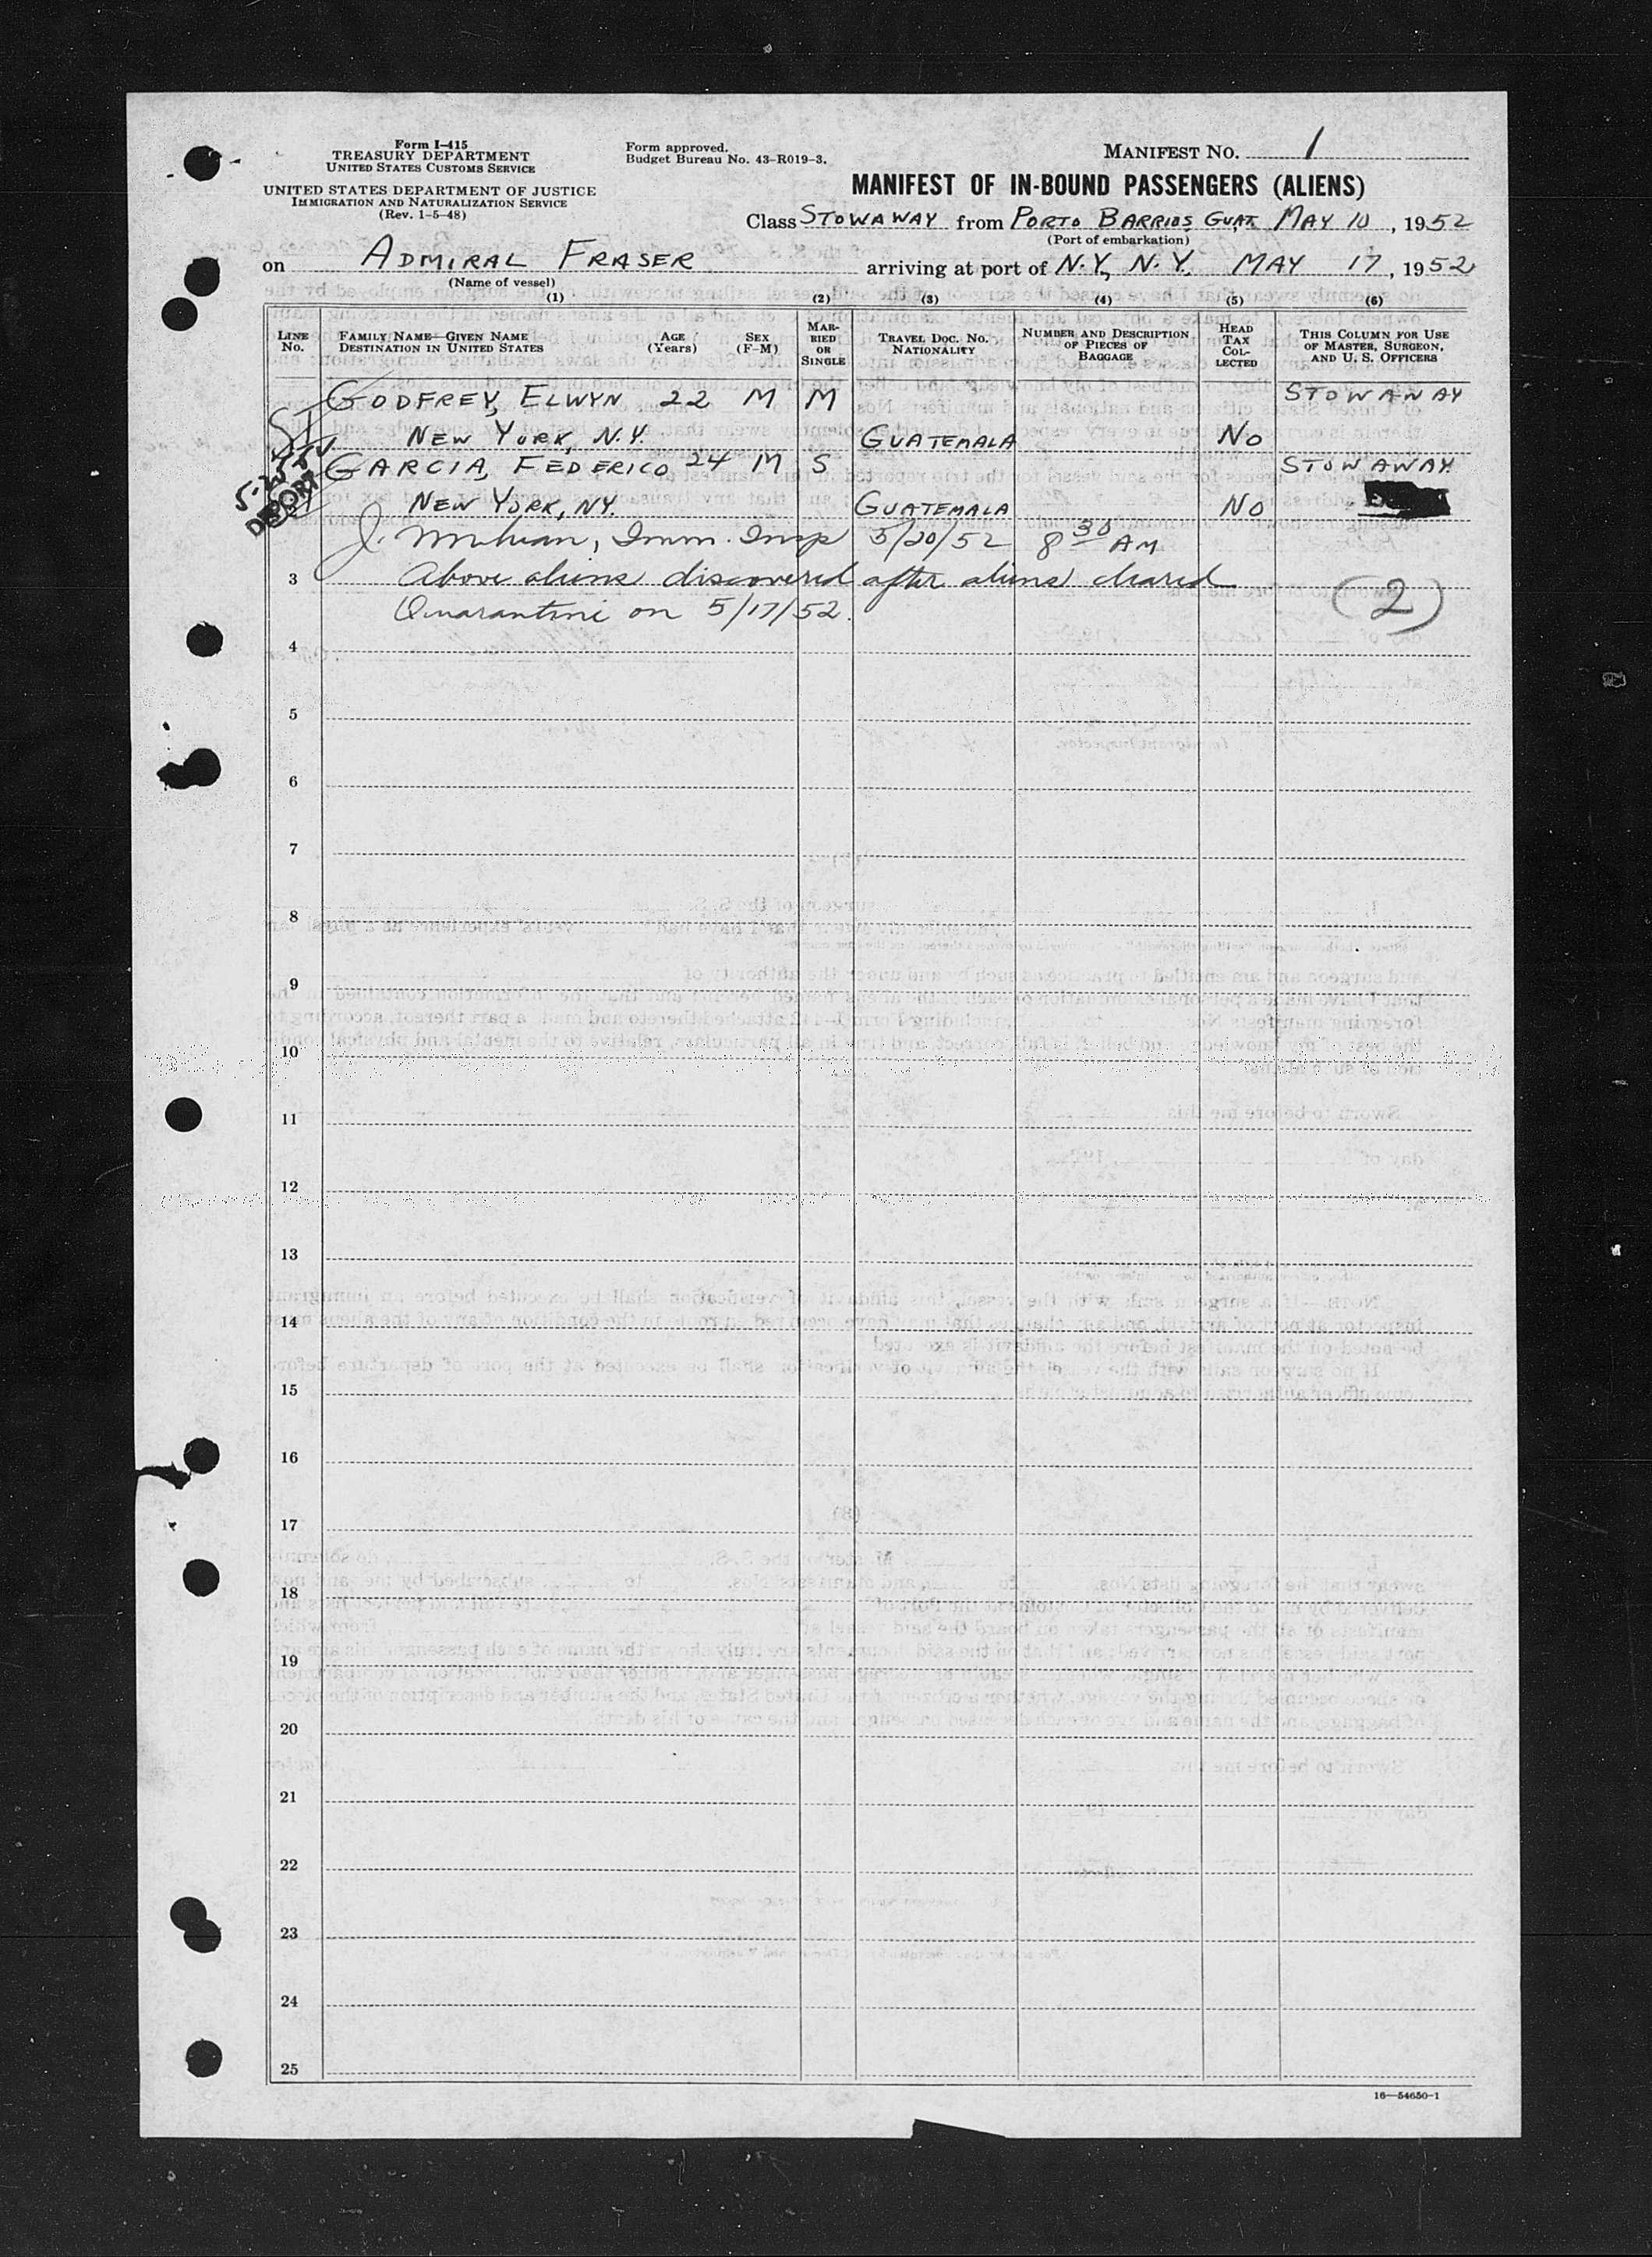 Form I-415
TREASURY DEPARTMENT
UNITED STATES CUSTOMS SERVICE
UNITED STATES DEPARTMENT OF JUSTICE
IMMIGRATION AND NATURALIZATION SERVICE
(Rev. 1-5-48)
Form approved.
Budget Bureau No. 43-R019-3.
MANIFEST NO. 1
MANIFEST OF IN-BOUND PASSENGERS (ALIENS)
Class STOWAWAY from PORTO BARRIOS GUAT. MAY 10, 1952
(Port of embarkation)
on ADMIRAL FRASER arriving at port of N.Y., N.Y. MAY 17, 1952
(Name of vessel)
(1) (2) (3) (4) (5) (6)
LINE No. FAMILY NAME—GIVEN NAME DESTINATION IN UNITED STATES AGE (Years) SEX (F-M) MARRIED OR SINGLE TRAVEL DOC. NO. NATIONALITY NUMBER AND DESCRIPTION OF PIECES OF BAGGAGE HEAD TAX COLLECTED THIS COLUMN FOR USE OF MASTER, SURGEON, AND U. S. OFFICERS
GODFREY, ELWYN 22 M M STOWAWAY
NEW YORK, N.Y. GUATEMALA NO
GARCIA, FEDERICO 24 M S STOWAWAY
NEW YORK, NY. GUATEMALA NO
DEPORT
Imm. Insp 5/20/52 8 30 AM
3 Above aliens discovered after aliens cleared
Quarantine on 5/17/52.
(2)
4
5
6
7
8
9
10
11
12
13
14
15
16
17
18
19
20
21
22
23
24
25
16—54650-1